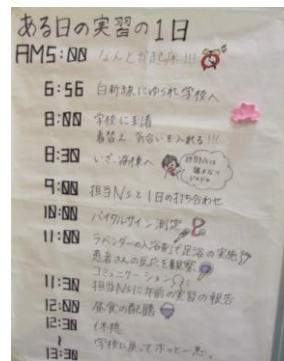 ある日の実習の1日
AM5:00 なんとか起床!!!
6:56 白新線にゆられ学校へ
8:00 学校に到着
着替え 気合いを入れる!!!
8:30 いざ、病棟へ
担当Nsは
9:00 担当Nsと1日の打ち合わせ
10:00 バイタルサイン測定
11:00 ラベンダーの入浴剤で足浴の実施
患者さんの反応を観察
コミュニケーション
11:30 担当Nsに午前の実習の報告
12:00 昼食の配膳
12:30 休憩
~ 学校に戻ってホッと一息。
13:30